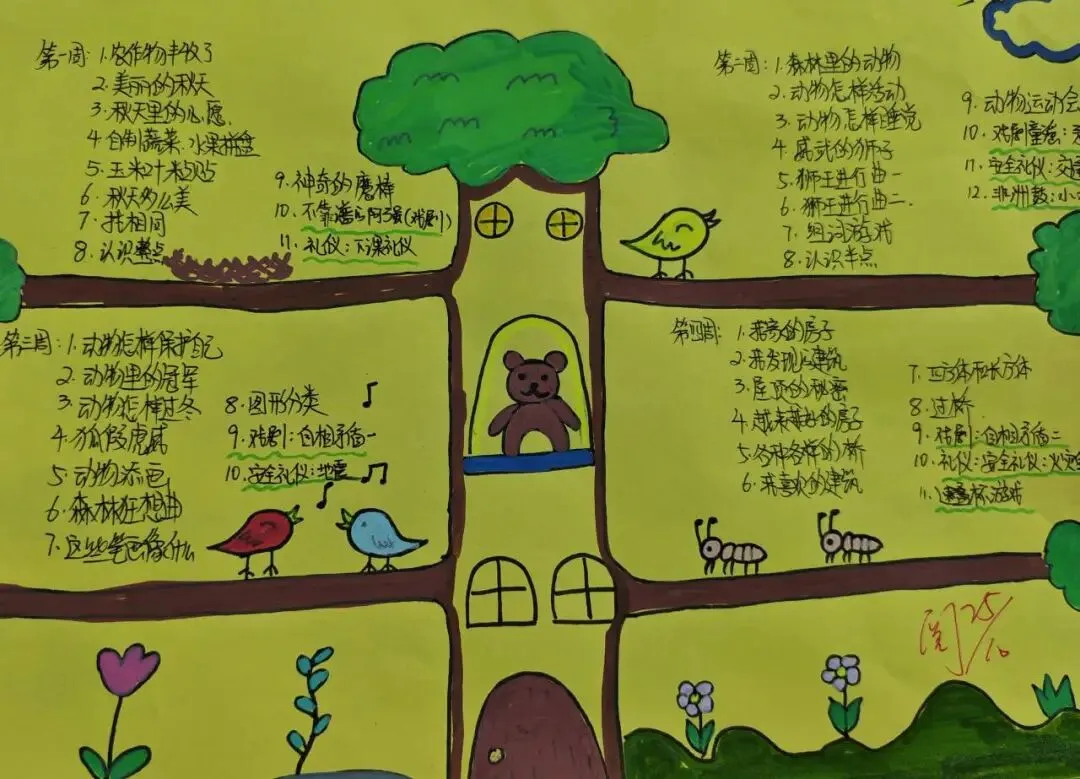 第一周：1.农作物丰收了
2.美丽的秋天
3.秋天里的心愿.
4.自制蔬菜.水果拼盘
5.玉米叶粘贴
6.秋天多么美
7.找相同
8.认识整点
9.神奇的魔棒
10.不靠谱的阿强(戏剧)
11.礼仪：下课礼仪
第二周：1.森林里的动物
2.动物怎样活动
3.动物怎样睡觉
4.威武的狮子
5.狮王进行曲一
6.狮王进行曲二.
7.组词游戏
8.认识半点
9.动物运动会
10.戏剧童谣：
11.安全礼仪：交
12.非洲鼓：小
第三周：1.动物怎样保护自己
2.动物里的冠军
3.动物怎样过冬
4.狐假虎威
5.动物添画
6.森林狂想曲
7.这些笔画像什么
8.图形分类
9.戏剧：自相矛盾一
10.安全礼仪：地震
第四周：1.我家的房子
2.我发现的建筑
3.屋顶的秘密
4.越来越好的房子
5.各种各样的桥
6.我喜欢的建筑
7.正方体和长方体
8.过桥
9.戏剧：自相矛盾二
10.礼仪：安全礼仪：火灾
11.游戏
阅 25/10